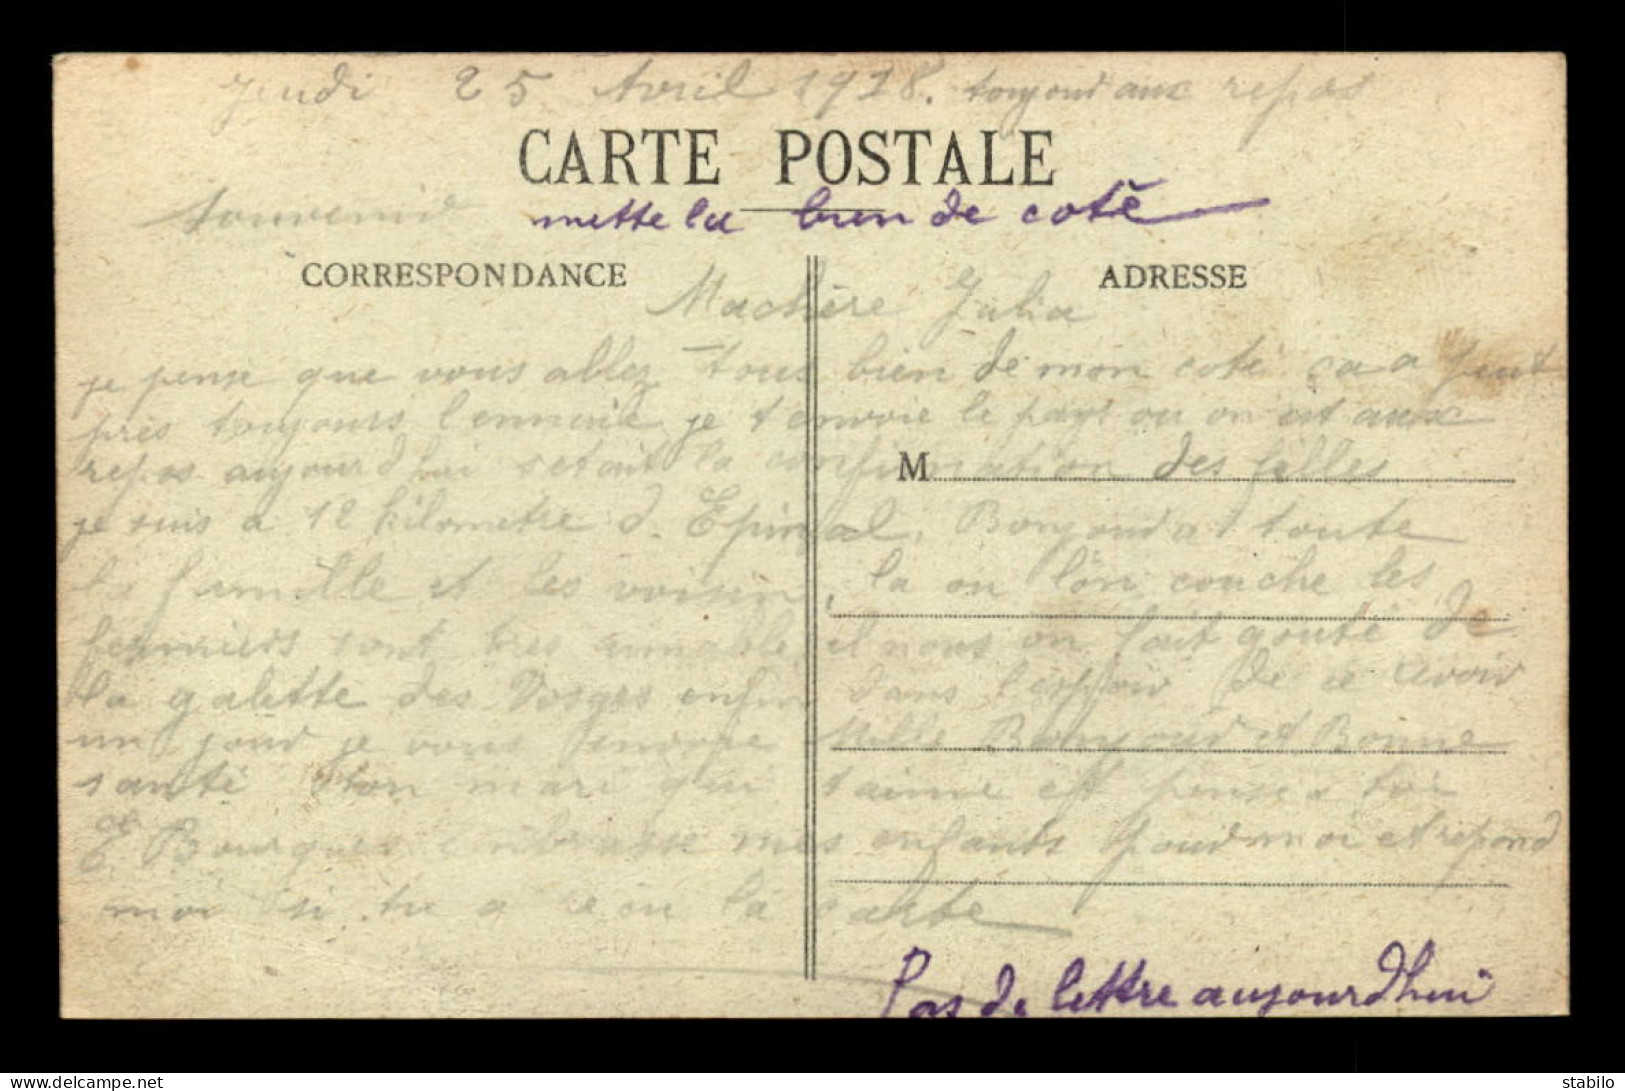 Jeudi 25 Avril 1918. toujour aux repos
CARTE POSTALE
Souvenir mette la bien de coté
CORRESPONDANCE ADRESSE
Machère Julia
je pense que vous allez tous bien de mon coté ça a peut
près toujours l'ennuie je t'envoie le pays ou on est aux
repos aujourd'hui setait la confirmation des filles
M
je suis a 12 kilometre d. Epinal. Bonjour a toute
la famille et les voisin, la ou l'on couche les
fermiers sont très aimable il nous on fait gouté de
la galette des Vosges enfin dans l'espoir de ce revoir
un jour je vous envoie Mille Bonjour et Bonne
santé ton mari qui t'aime et pense a toi
E. Bourgues embrasse mes enfants pour moi et repond
moi si tu a reçu la carte
Pas de lettre aujourd'hui
delcampe.net
stabilo